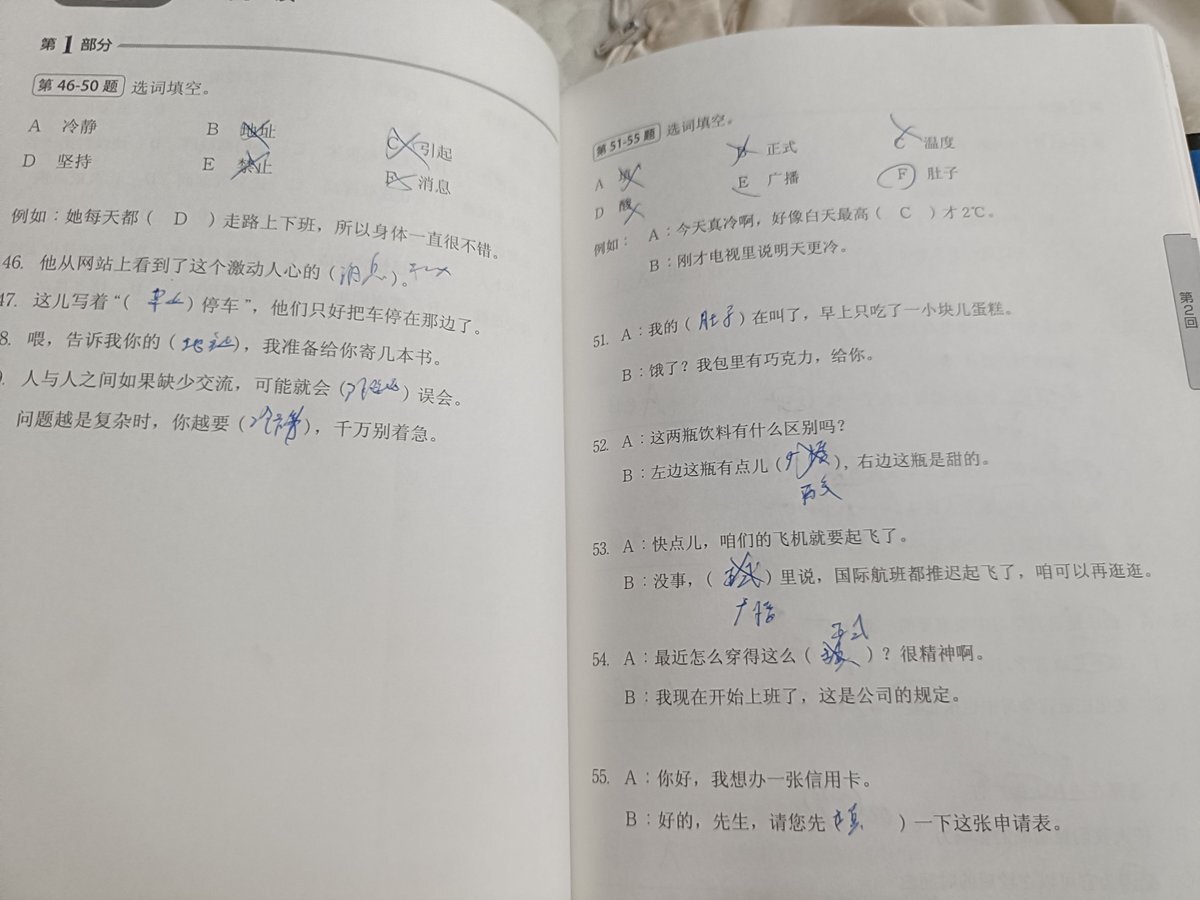 第 1 部分
第 46-50 题 选词填空。
A 冷静 B 地址 C 引起
D 坚持 E 禁止 F 消息
例如：她每天都（ D ）走路上下班，所以身体一直很不错。
46. 他从网站上看到了这个激动人心的（消息）。
47. 这儿写着“（ ）停车”，他们只好把车停在那边了。
8. 喂，告诉我你的（地址），我准备给你寄几本书。
9. 人与人之间如果缺少交流，可能就会（ ）误会。
问题越是复杂时，你越要（冷静），千万别着急。
第 51-55 题 选词填空。
A 填 B 正式 C 温度
D 酸 E 广播 F 肚子
例如： A：今天真冷啊，好像白天最高（ C ）才2℃。
B：刚才电视里说明天更冷。
51. A：我的（肚子）在叫了，早上只吃了一小块儿蛋糕。
B：饿了？我包里有巧克力，给你。
52. A：这两瓶饮料有什么区别吗？
B：左边这瓶有点儿（ ），右边这瓶是甜的。
酸
53. A：快点儿，咱们的飞机就要起飞了。
B：没事，（ ）里说，国际航班都推迟起飞了，咱可以再逛逛。
广播
正式
54. A：最近怎么穿得这么（ ）？很精神啊。
B：我现在开始上班了，这是公司的规定。
55. A：你好，我想办一张信用卡。
B：好的，先生，请您先 填 ）一下这张申请表。
第2回